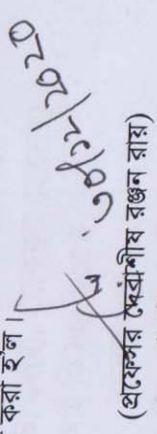 করা হ'ল।
৩০/১২/২০২০
(প্রফেসর দেবাশীষ রঞ্জন রায়)